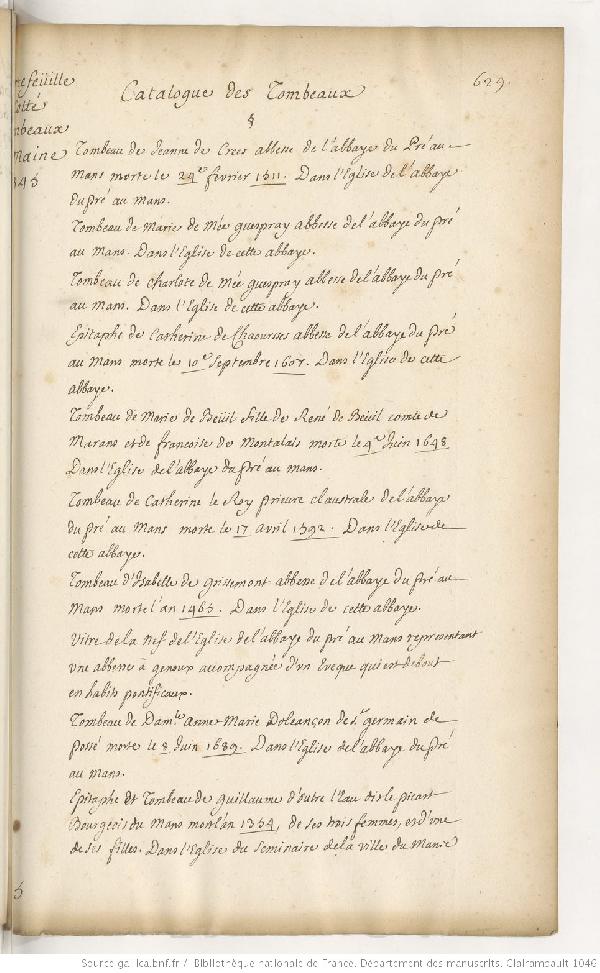 Catalogue des Tombeaux
629.
§
Tombeau de Jeanne de Crees abbesse de l'abbaye du Pré au
Mans morte le 24e fevrier 1511. Dans l'Eglise de l'abbaye
du pré au Mans.
Tombeau de Marie de Mée guespray abbesse de l'abbaye du pré
au Mans. Dans l'Eglise de cette abbaye.
Tombeau de Charlote de Mée guespray abbesse de l'abbaye du pré
au Mans. Dans l'Eglise de cette abbaye.
Epitaphe de Catherine de Chaourses abbesse de l'abbaye du pré
au Mans morte le 10e Septembre 1607. Dans l'Eglise de cette
abbaye.
Tombeau de Marie de Beüil fille de René de Beüil comte de
Marans et de francoise de Montalais morte le 4e Juin 1648
Dans l'Eglise de l'abbaye du pré au mans.
Tombeau de Catherine le Roy prieure claustrale de l'abbaye
du pré au Mans morte le 17 avril 1592. Dans l'Eglise de
cette abbaye.
Tombeau d'Isabelle de grissemont abbesse de l'abbaye du pré au
Mans morte l'an 1465. Dans l'Eglise de cette abbaye.
Vitre de la nef de l'Eglise de l'abbaye du pré au Mans representant
vne abbesse à genoux accompagnée d'vn Eveque qui est debout
en habits pontificaux.
Tombeau de Damlle Anne Marie Doleançon de St germain de
possé morte le 8 Juin 1689. Dans l'Eglise de l'abbaye du pré
au mans.
Epitaphe et Tombeau de guillaume d'outre l'eau dit le picart
Bourgeois du Mans mort l'an 1354, de ses trois femmes, et d'une
de ses filles. Dans l'Eglise du Seminaire de la ville du Mans
nefeüille
mbeaux
Maine
Source gallica.bnf.fr / Bibliothèque nationale de France. Département des manuscrits. Clairambault 1046